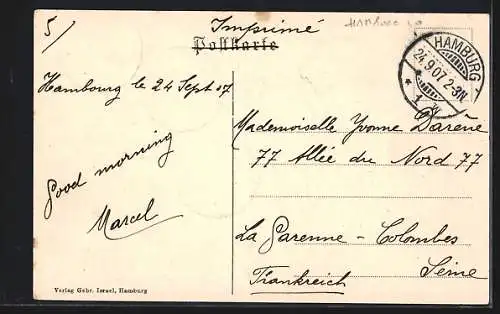 5/
Imprimé
Postkarte
HAMBURG
24.9.07. 2-3N
* 1
Hambourg le 24 Sept 07
Good morning
Marcel
Mademoiselle Yvonne Darène
77 Allée du Nord 77
La Garenne-Colombes
Seine
Frankreich
Verlag Gebr. Israel, Hamburg